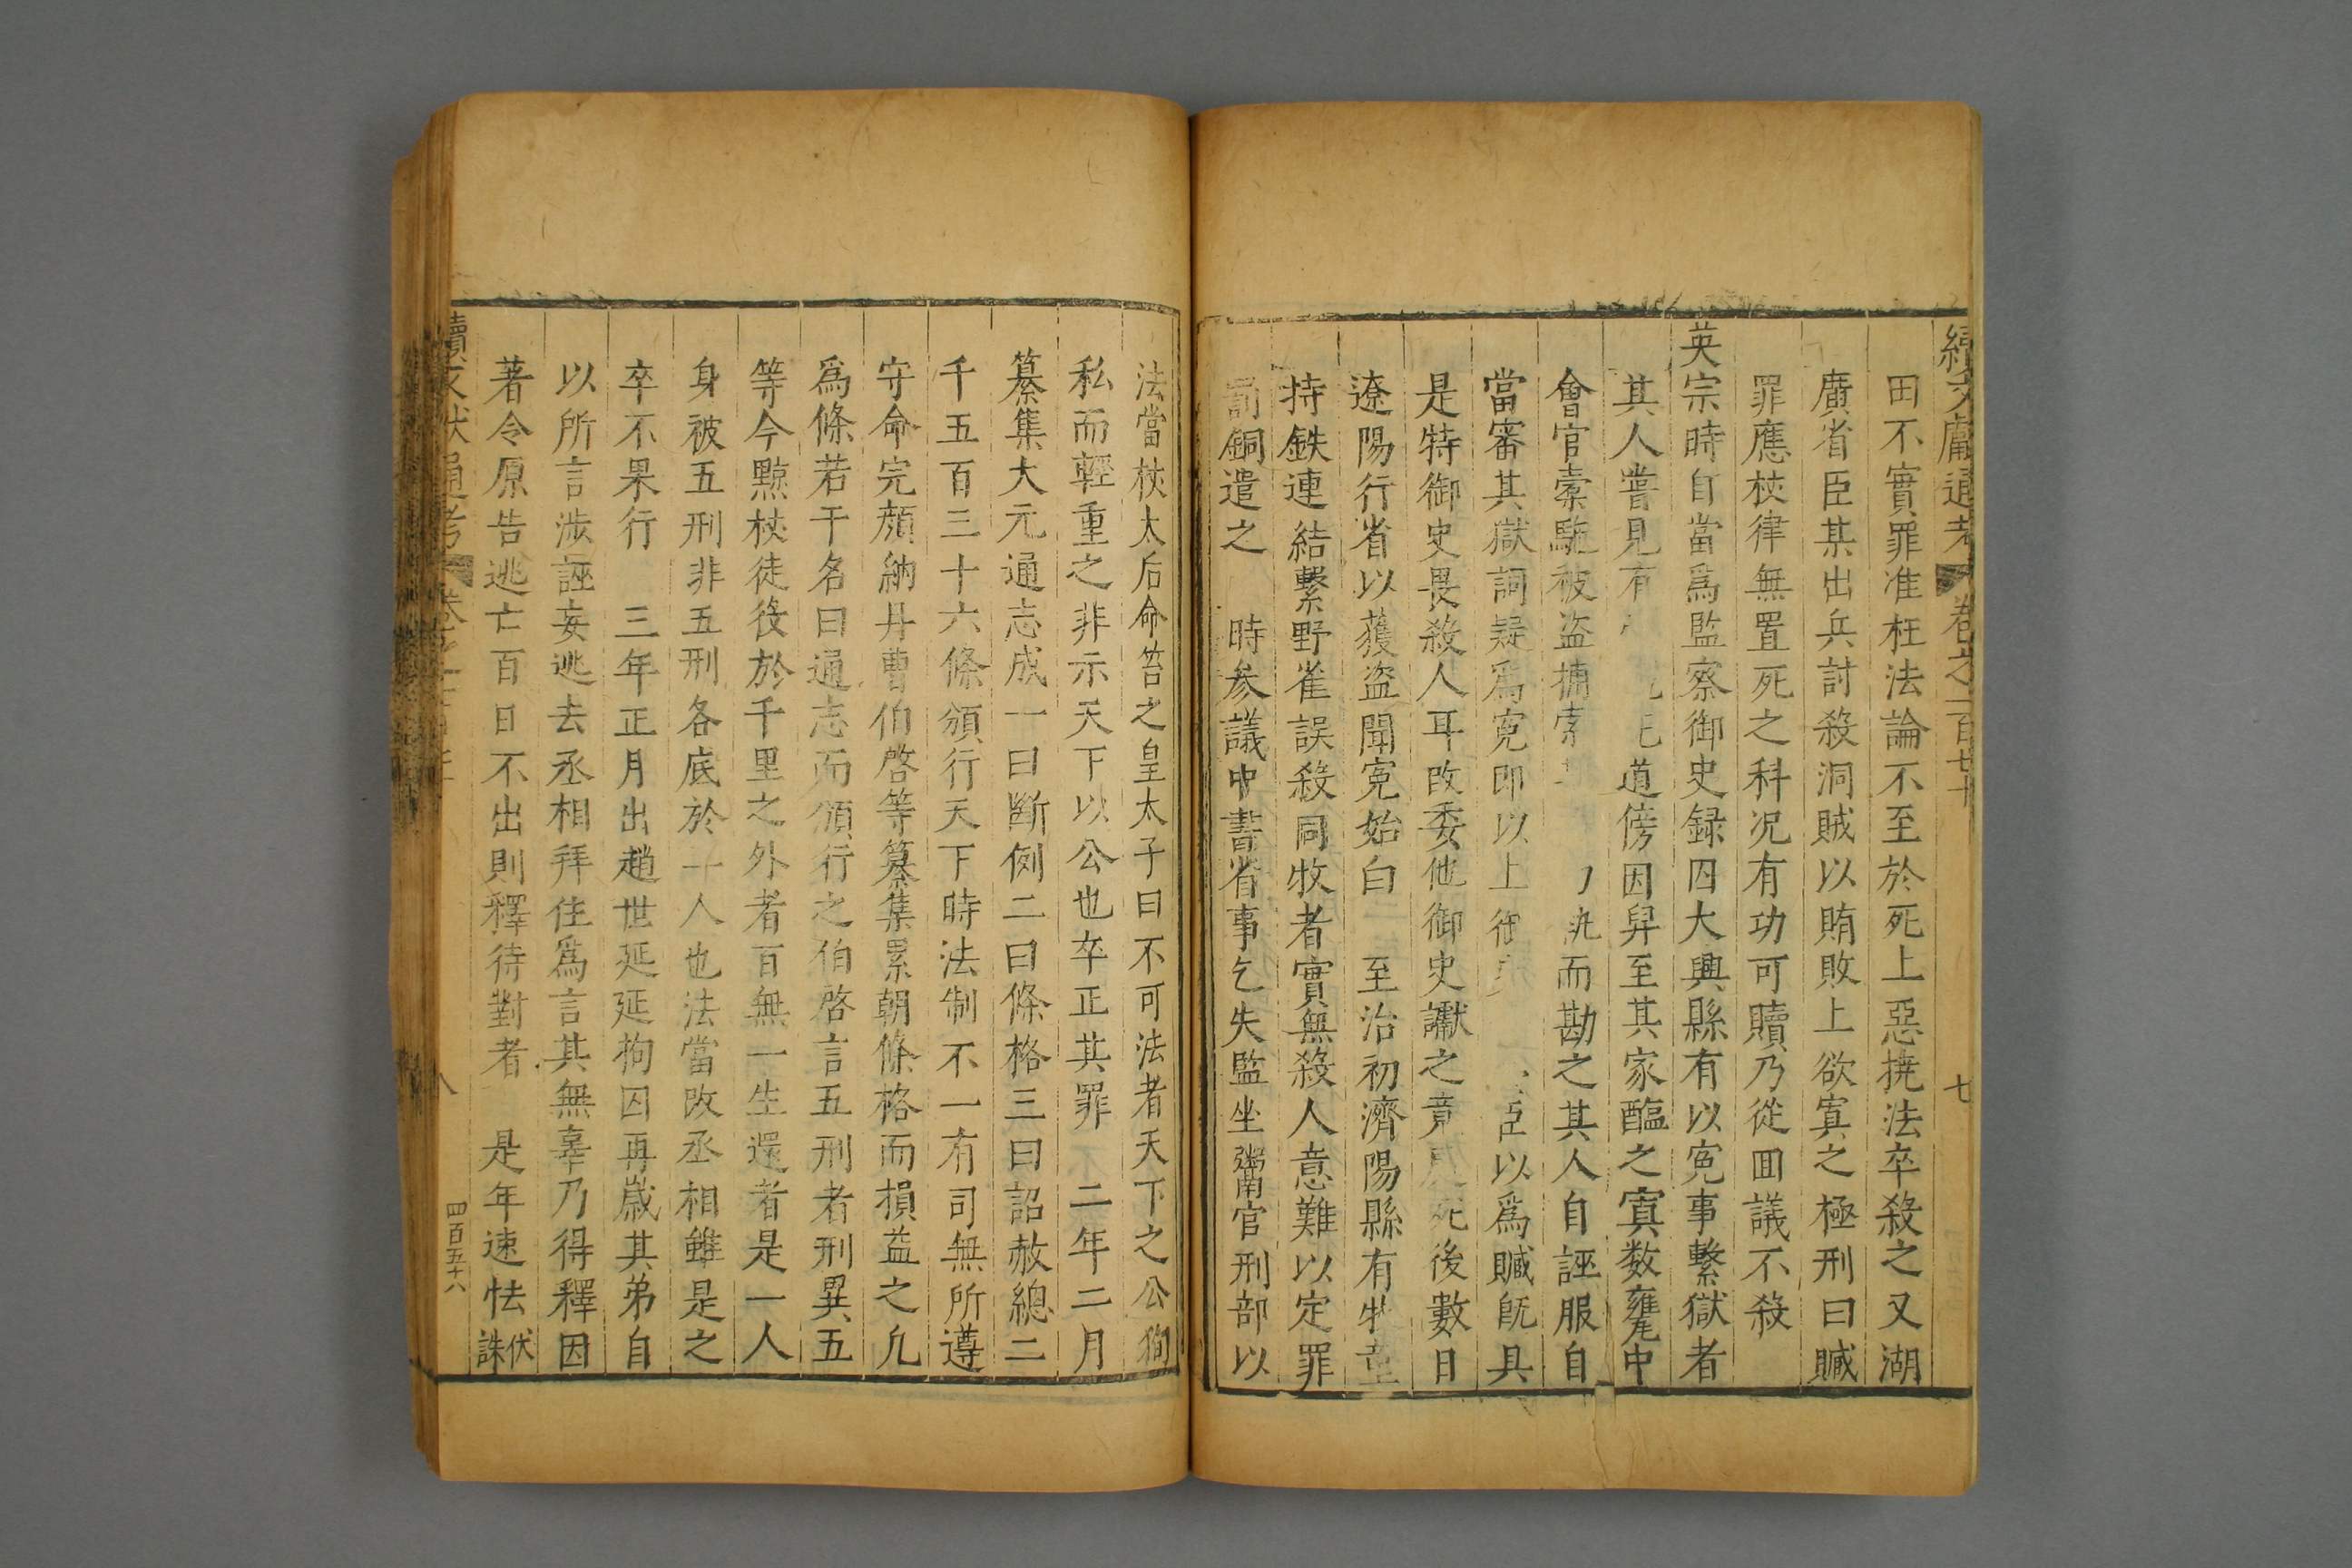 續文獻通考 卷之一百七十 七
田不實罪准枉法論不至於死上惡撓法卒殺之又湖
廣省臣某出兵討殺洞賊以賄敗上欲寘之極刑曰贓
罪應杖律無置死之科况有功可贖乃從囬議不殺
英宗時自當爲監察御史録囚大興縣有以寃事繫獄者
其人嘗見有 道傍因舁至其家醢之寘数甕中
會官槖駞被盗捕索 而勘之其人自誣服自
當審其獄詞疑爲寃即以上御 臣以爲贓旣具
是特御史畏殺人耳改委他御史讞之竟 死後數日
遼陽行省以獲盗聞寃始白 至治初濟陽縣有牧童
持鉄連結繫野雀誤殺同牧者實無殺人意難以定罪
罰銅遣之 時参議中書省事乞失監坐鬻官刑部以
法當杖太后命笞之皇太子曰不可法者天下之公徇
私而輕重之非示天下以公也卒正其罪 二年二月
纂集大元通志成一曰斷例二曰條格三曰詔赦總二
千五百三十六條頒行天下時法制不一有司無所遵
守命完顔納丹曹伯啓等纂集累朝條格而損益之凢
爲條若干名曰通志而頒行之伯啓言五刑者刑異五
等今黥杖徒役於千里之外者百無一生還者是一人
身被五刑非五刑各底於一人也法當改丞相雖是之
卒不果行 三年正月出趙世延延拘囚再歲其弟自
以所言涉誣妄逃去丞相拜住爲言其無辜乃得釋因
著令原告逃亡百日不出則釋待對者 是年速怯伏誅
續文獻通考 八 四百五十八